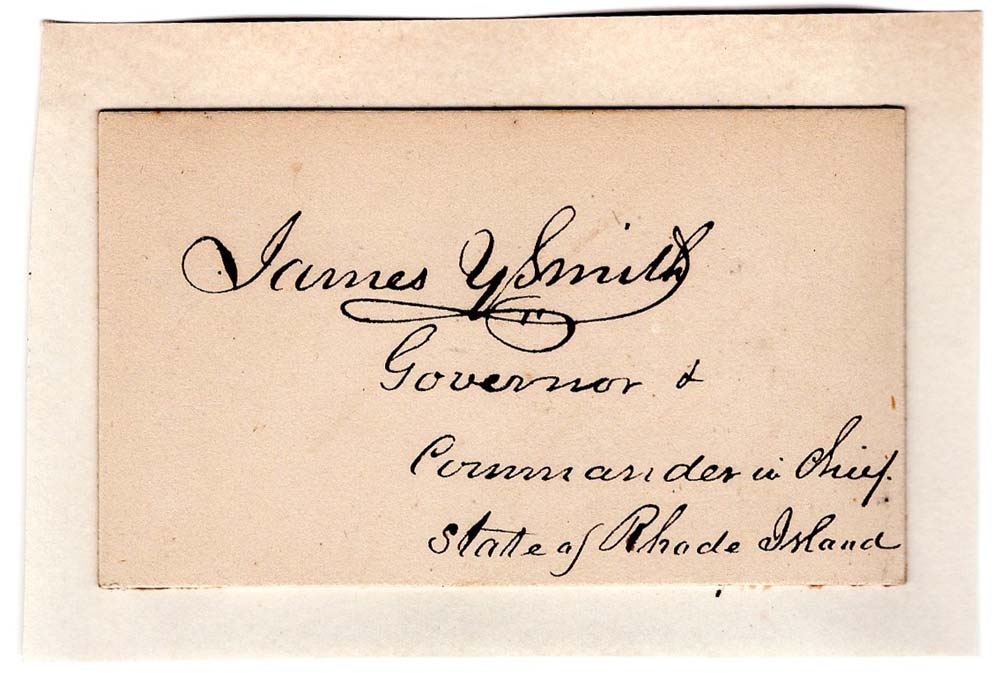 James Y Smith
Governor &
Commander in Chief.
State of Rhode Island